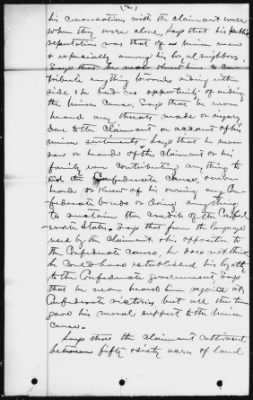 (2)
his conversations with the claimant were
when they were alone, says that his public
reputation was that of a Union man
& especially among his loyal neighbors,
Says that he never knew him to con-
tribute anything towards aiding either
side & he had no opportunity of aiding
the Union Cause, Says that he never
heard any threats made or injury
done to the Claimant on account of his
Union sentiments. Says that he never
saw or heard of the claimant or his
family ever contributing anything to
aid the Confederate Cause, never
heard or knew of his owning any Con-
federate bonds or doing anything
to sustain the credit of the Confed-
erate States. Says that from the language
used by the Claimant & his opposition to
the Confederate cause, he does not think
he could have established his loyalty
to the Confederate government. Says
that he never heard him rejoice at
Confederate victories but all the time
gave his moral support to the Union
Cause.
Says that the Claimant cultivated
between fifty & sixty acres of land